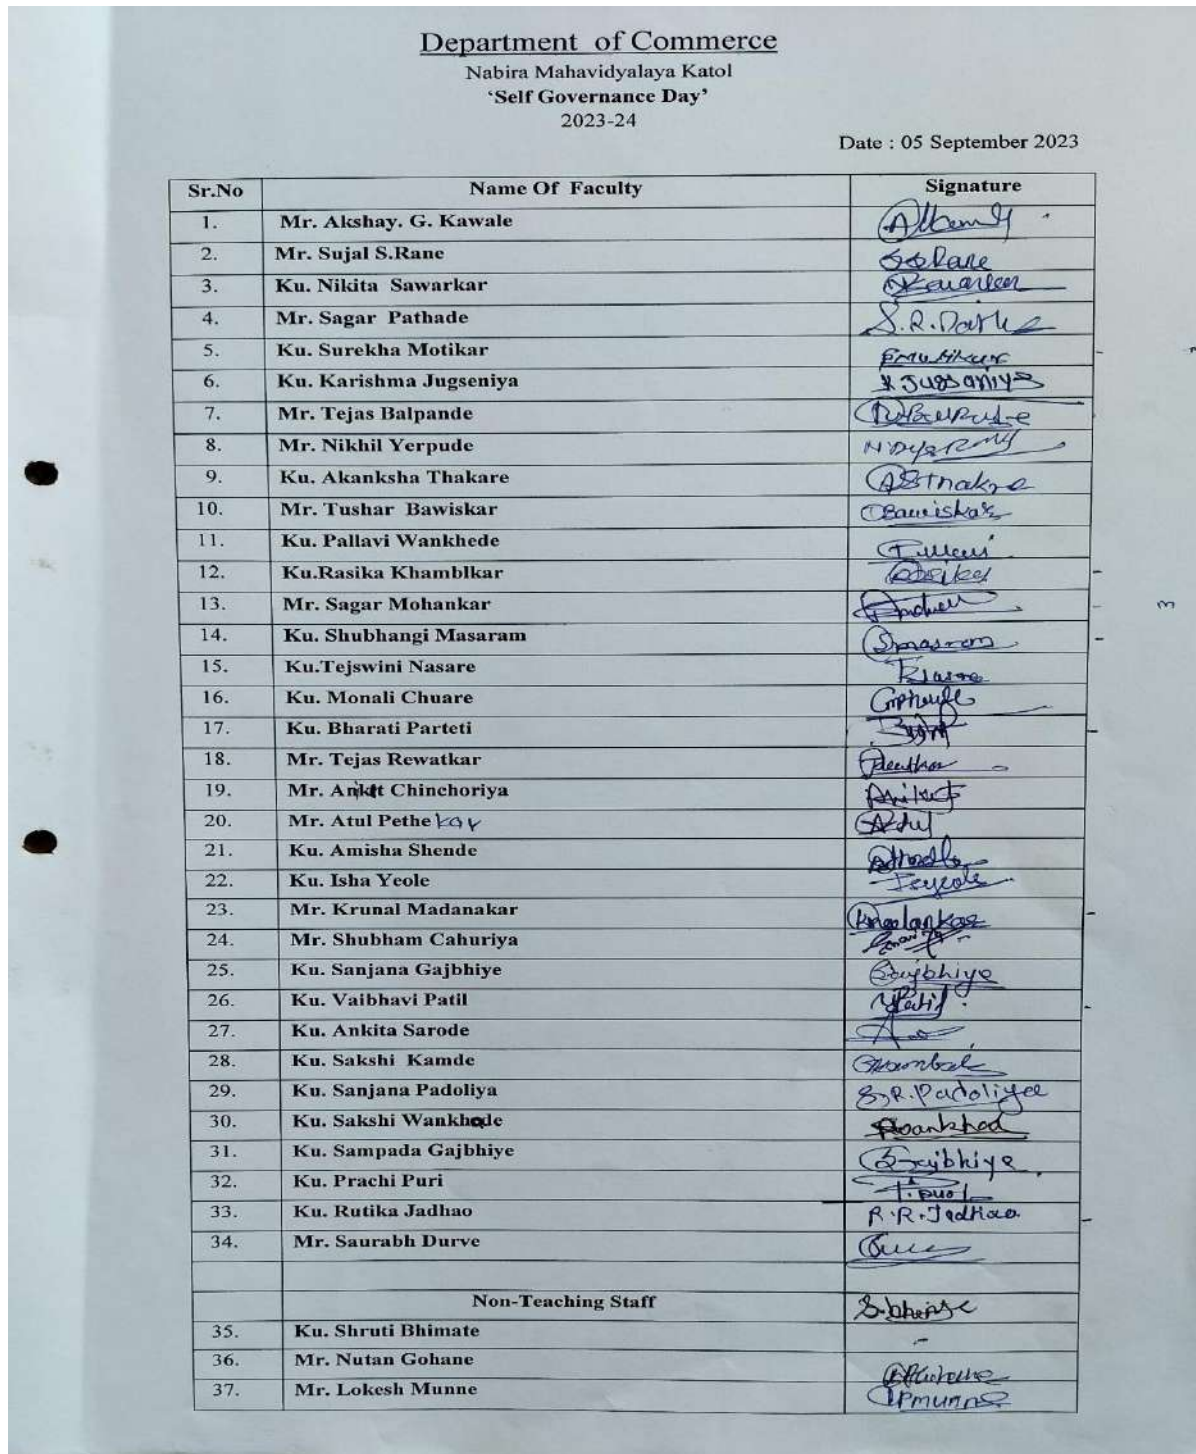 Department of Commerce
Nabira Mahavidyalaya Katol
‘Self Governance Day’
2023-24
Date : 05 September 2023
Sr.No Name Of Faculty Signature
1. Mr. Akshay. G. Kawale
2. Mr. Sujal S.Rane SSRane
3. Ku. Nikita Sawarkar
4. Mr. Sagar Pathade
5. Ku. Surekha Motikar
6. Ku. Karishma Jugseniya
7. Mr. Tejas Balpande
8. Mr. Nikhil Yerpude
9. Ku. Akanksha Thakare
10. Mr. Tushar Bawiskar Bawiskar
11. Ku. Pallavi Wankhede
12. Ku.Rasika Khamblkar
13. Mr. Sagar Mohankar
14. Ku. Shubhangi Masaram
15. Ku.Tejswini Nasare
16. Ku. Monali Chuare
17. Ku. Bharati Parteti
18. Mr. Tejas Rewatkar
19. Mr. Ankit Chinchoriya
20. Mr. Atul Pethekar
21. Ku. Amisha Shende
22. Ku. Isha Yeole
23. Mr. Krunal Madanakar
24. Mr. Shubham Cahuriya
25. Ku. Sanjana Gajbhiye Gajbhiye
26. Ku. Vaibhavi Patil VPatil
27. Ku. Ankita Sarode
28. Ku. Sakshi Kamde
29. Ku. Sanjana Padoliya S.R.Padoliya
30. Ku. Sakshi Wankhade
31. Ku. Sampada Gajbhiye Gajbhiye
32. Ku. Prachi Puri
33. Ku. Rutika Jadhao R.R.Jadhao
34. Mr. Saurabh Durve
Non-Teaching Staff
35. Ku. Shruti Bhimate
36. Mr. Nutan Gohane
37. Mr. Lokesh Munne